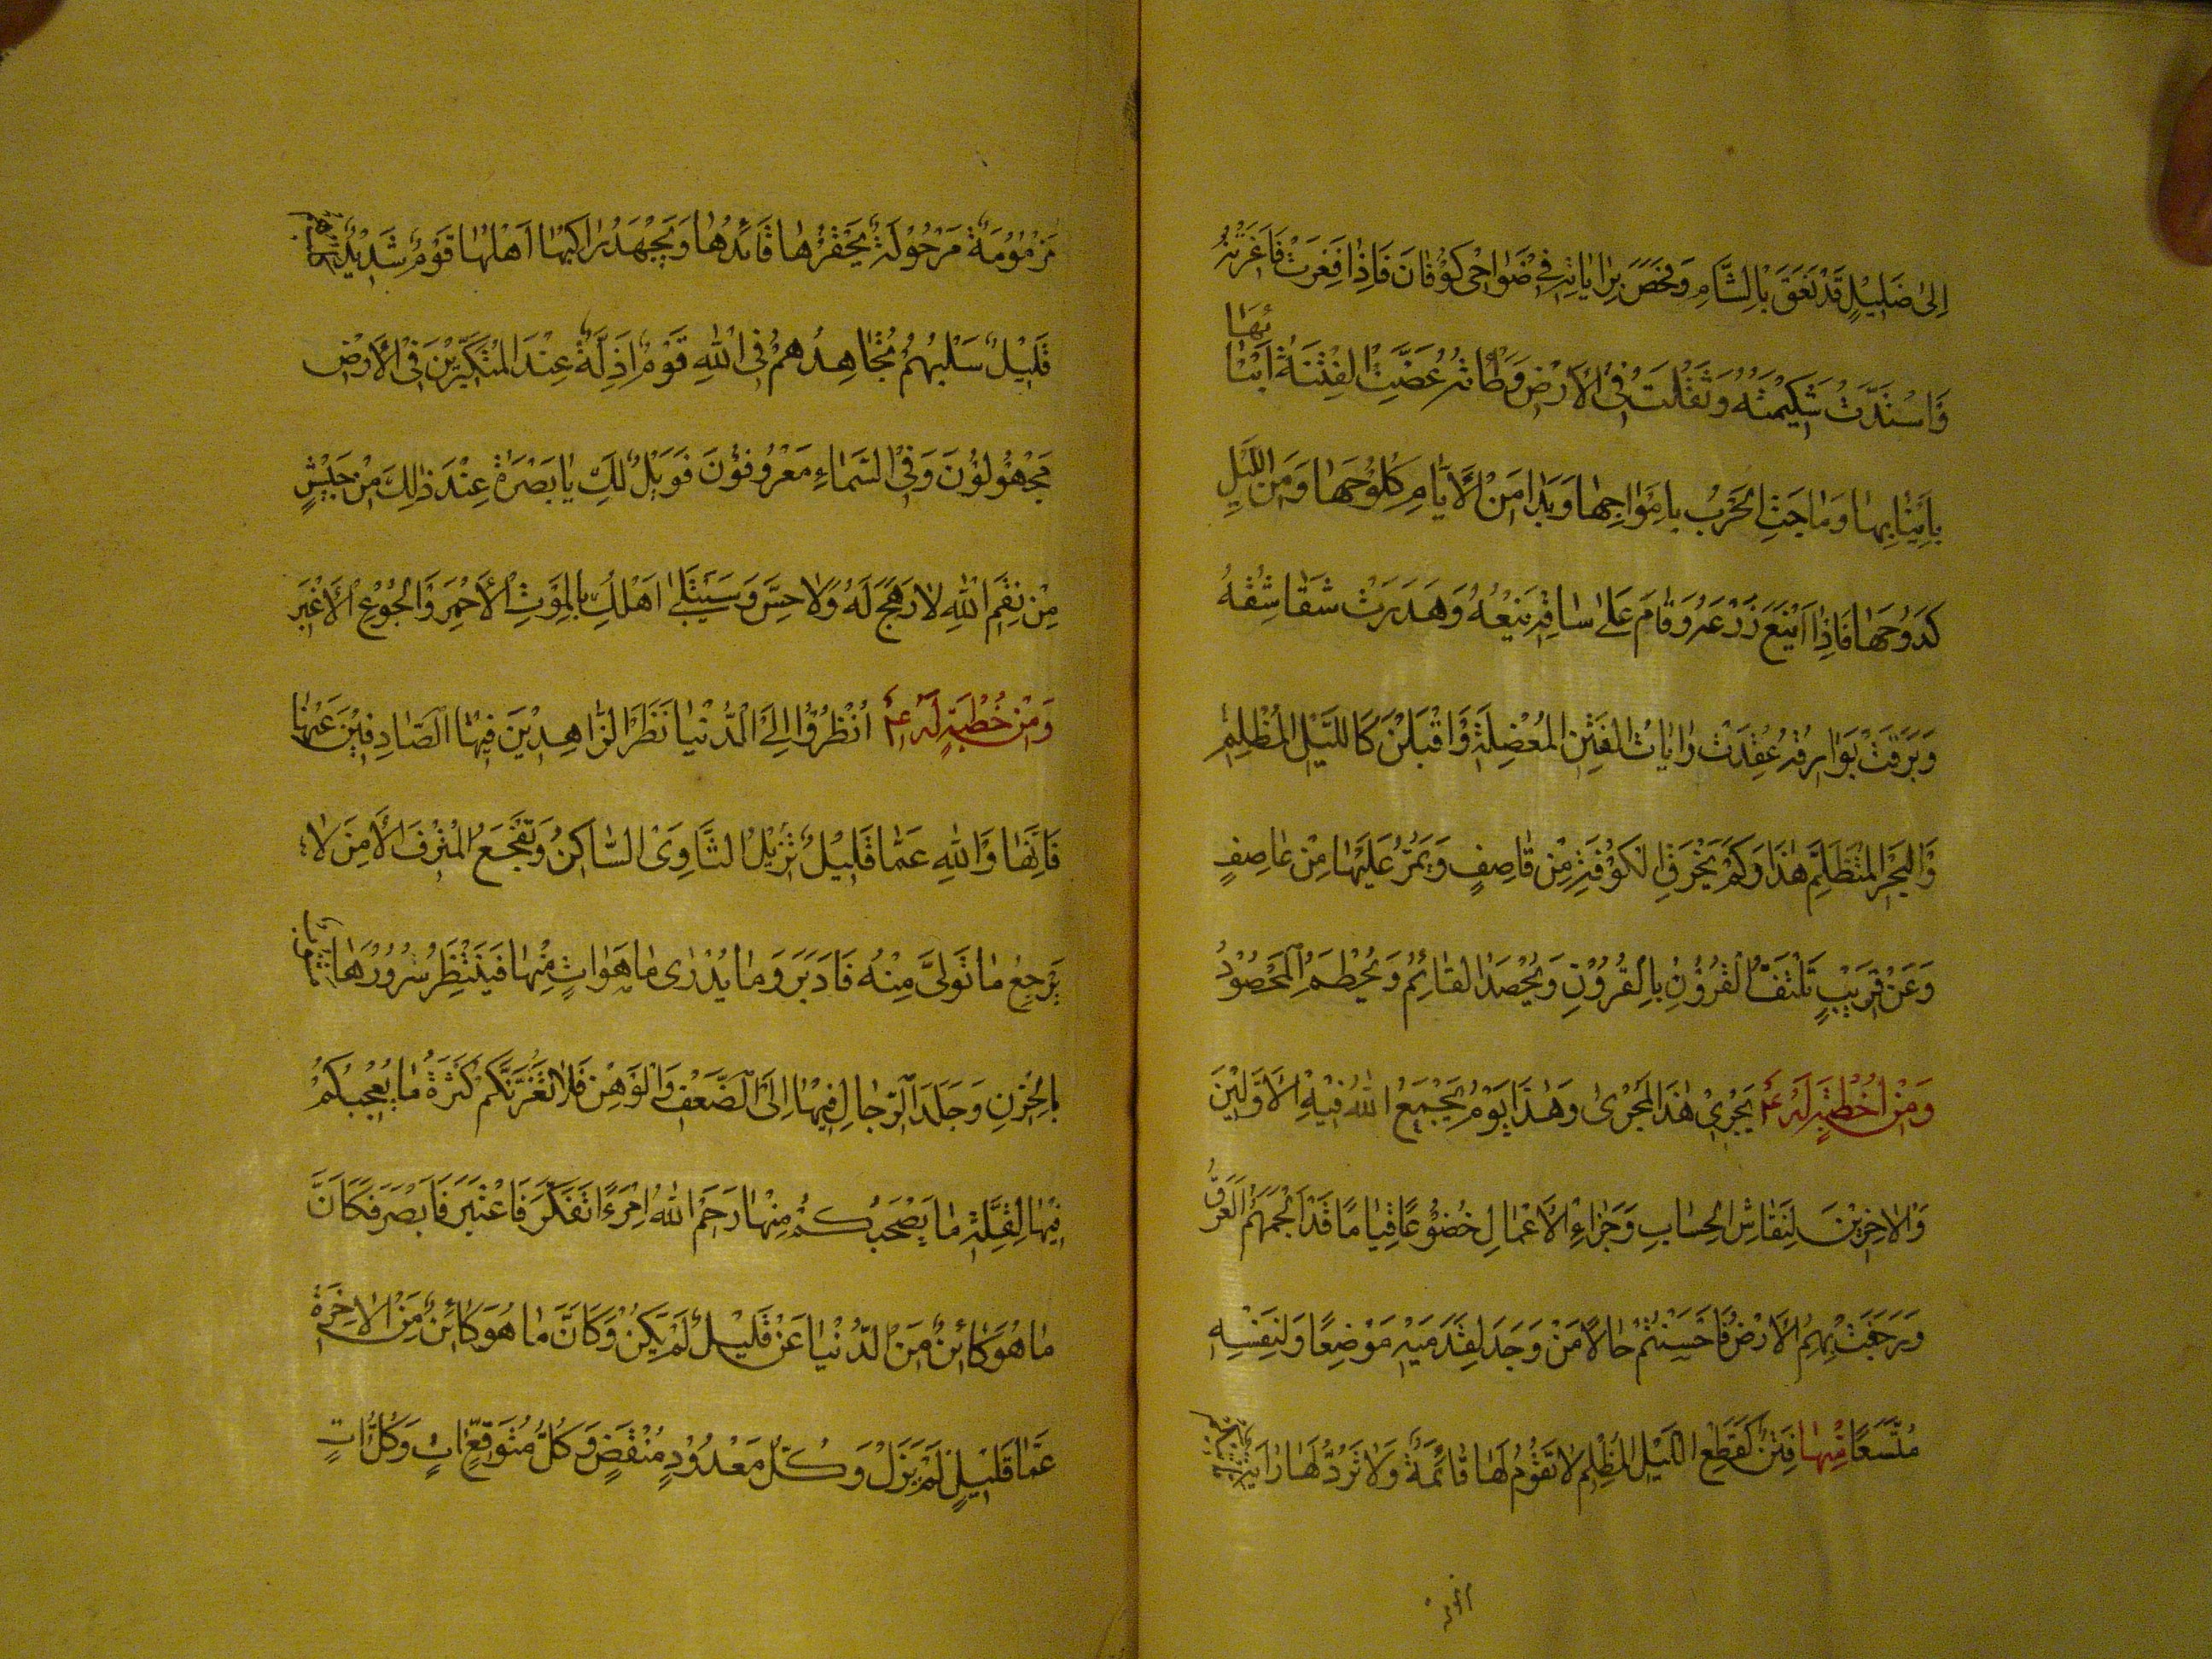 اِلىٰ ضَلِيْلٍ قَدْ نَعَقَ بِالشَّامِ وَفَحَصَ بِرٰايٰاتِهِ فِي ضَوٰاحِى كَوُفٰانَ فَاِذٰا فَغَرَتْ فٰاغِرَتُهُ
وَاسْتَدَّتْ شَكِيْمَتُهُ وَثَقُلَتْ فِى الْاَرْضِ وَطْأَتُهُ عَضَّتِ الْفِتْنَةُ اَبْنٰائَهٰا
بِاَنْيٰابِهٰا وَمٰاجَتِ الْحَرْبُ بِاَمْوٰاجِهٰا وَبَدٰا مِنَ الْاَيّٰامِ كُلُوْحُهٰا وَمِنَ اللَّيٰلِى
كُدُوْحُهٰا فَاِذٰا اَيْنَعَ زَرْعُهُ وَقٰامَ عَلىٰ سٰاقِهِ يَنْعُهُ وَهَدَرَتْ شَقٰاشِقُهُ
وَبَرَقَتْ بَوٰارِقُهُ عُقِدَتْ رٰايٰاتُ الْفِتَنِ الْمُعْضِلَةِ وَاَقْبَلْنَ كَاللَّيْلِ الْمُظْلِمِ
وَالْبَحْرِ الْمُتَظَلِّمِ هٰذٰا وَكَمْ يَخْرِقُ الْكُوْفَةَ مِنْ قٰاصِفٍ وَيَمُرُّ عَلَيْهٰا مِنْ عٰاصِفٍ
وَعَنْ قَرِيْبٍ تَلْتَفُّ الْقُرُوْنُ بِالْقُرُوْنِ وَيُحْصَدُ الْقٰائِمُ وَيُحْطَمُ الْمَحْصُوْدُ
وَمِنْ خُطْبَةٍ لَهُ ع يَجْرِيْ هٰذَا الْمَجْرىٰ وَهٰذٰا يَوْمُ يَجْمَعُ اللهُ فِيْهِ الْاَوَّلِيْنَ
وَالْاٰخِرِيْنَ لِنِقٰاشِ الْحِسٰابِ وَجَزٰاءِ الْاَعْمٰالِ خُضُوْعًا قِيٰامًا قَدْ اَلْجَمَهُمُ الْعَرَقُ
وَرَجَفَتْ بِهِمُ الْاَرْضُ فَاَحْسَنُهُمْ حٰالًا مَنْ وَجَدَ لِقَدَمَيْهِ مَوْضِعًا وَلِنَفْسِهِ
مُتَّسَعًا مِنْهٰا فِتَنٌ كَقِطَعِ اللَّيْلِ الْمُظْلِمِ لٰا تَقُوْمُ لَهٰا قٰائِمَةٌ وَلٰا تُرَدُّ لَهٰا رٰايَةٌ
مَزْمُوْمَةً مَرْحُوْلَةً يَحْفِزُهٰا قٰائِدُهٰا وَيَجْهَدُ رٰاكِبُهٰا اَهْلُهٰا قَوْمٌ شَدِيْدٌ
قَلِيْلٌ سَلَبُهُمْ يُجٰاهِدُهُمْ فِى اللهِ قَوْمٌ اَذِلَّةٌ عِنْدَ الْمُتَكَبِّرِيْنَ فِى الْاَرْضِ
مَجْهُوْلُوْنَ وَفِى السَّمٰاءِ مَعْرُوْفُوْنَ فَوَيْلٌ لَكِ يٰا بَصْرَةُ عِنْدَ ذٰلِكَ مِنْ جَيْشٍ
مِنْ نِقَمِ اللهِ لٰا رَهَجَ لَهُ وَلٰا حِسَّ وَسَيُبْتَلىٰ اَهْلُكِ بِالْمَوْتِ الْاَحْمَرِ وَالْجُوْعِ الْاَغْبَرِ
وَمِنْ خُطْبَةٍ لَهُ ع اُنْظُرُوْا اِلَى الدُّنْيٰا نَظَرَ الزّٰاهِدِيْنَ فِيْهٰا الصّٰادِفِيْنَ عَنْهٰا
فَاِنَّهٰا وَاللهِ عَمّٰا قَلِيْلٍ تُزِيْلُ الثَّاوِىَ السّٰاكِنَ وَتَفْجَعُ الْمُتْرَفَ الْاٰمِنَ لٰا
يَرْجِعُ مٰا تَوَلّىٰ مِنْهُ فَاَدْبَرَ وَمٰا يُدْرٰى مٰا هُوَ اٰتٍ مِنْهٰا فَيُنْتَظَرُ سُرُوْرُهٰا
بِالْحُزْنِ وَجَلَدُ الرِّجٰالِ فِيْهٰا اِلَى الضَّعْفِ وَالْوَهْنِ فَلٰا تَغُرَّنَّكُمْ كَثْرَةُ مٰا يُعْجِبُكُمْ
فِيْهٰا لِقِلَّةِ مٰا يَصْحَبُكُمْ مِنْهٰا رَحِمَ اللهُ اِمْرَءًا تَفَكَّرَ فَاعْتَبَرَ فَاَبْصَرَ فَكَاَنَّ
مٰا هُوَ كٰائِنٌ مِنَ الدُّنْيٰا عَنْ قَلِيْلٍ لَمْ يَكُنْ وَكَاَنَّ مٰا هُوَ كٰائِنٌ مِنَ الْاٰخِرَةِ
عَمّٰا قَلِيْلٍ لَمْ يَزَلْ وَكُلُّ مَعْدُوْدٍ مُنْقَضٍ وَكُلُّ مُتَوَقَّعٍ اٰتٍ وَكُلُّ اٰتٍ